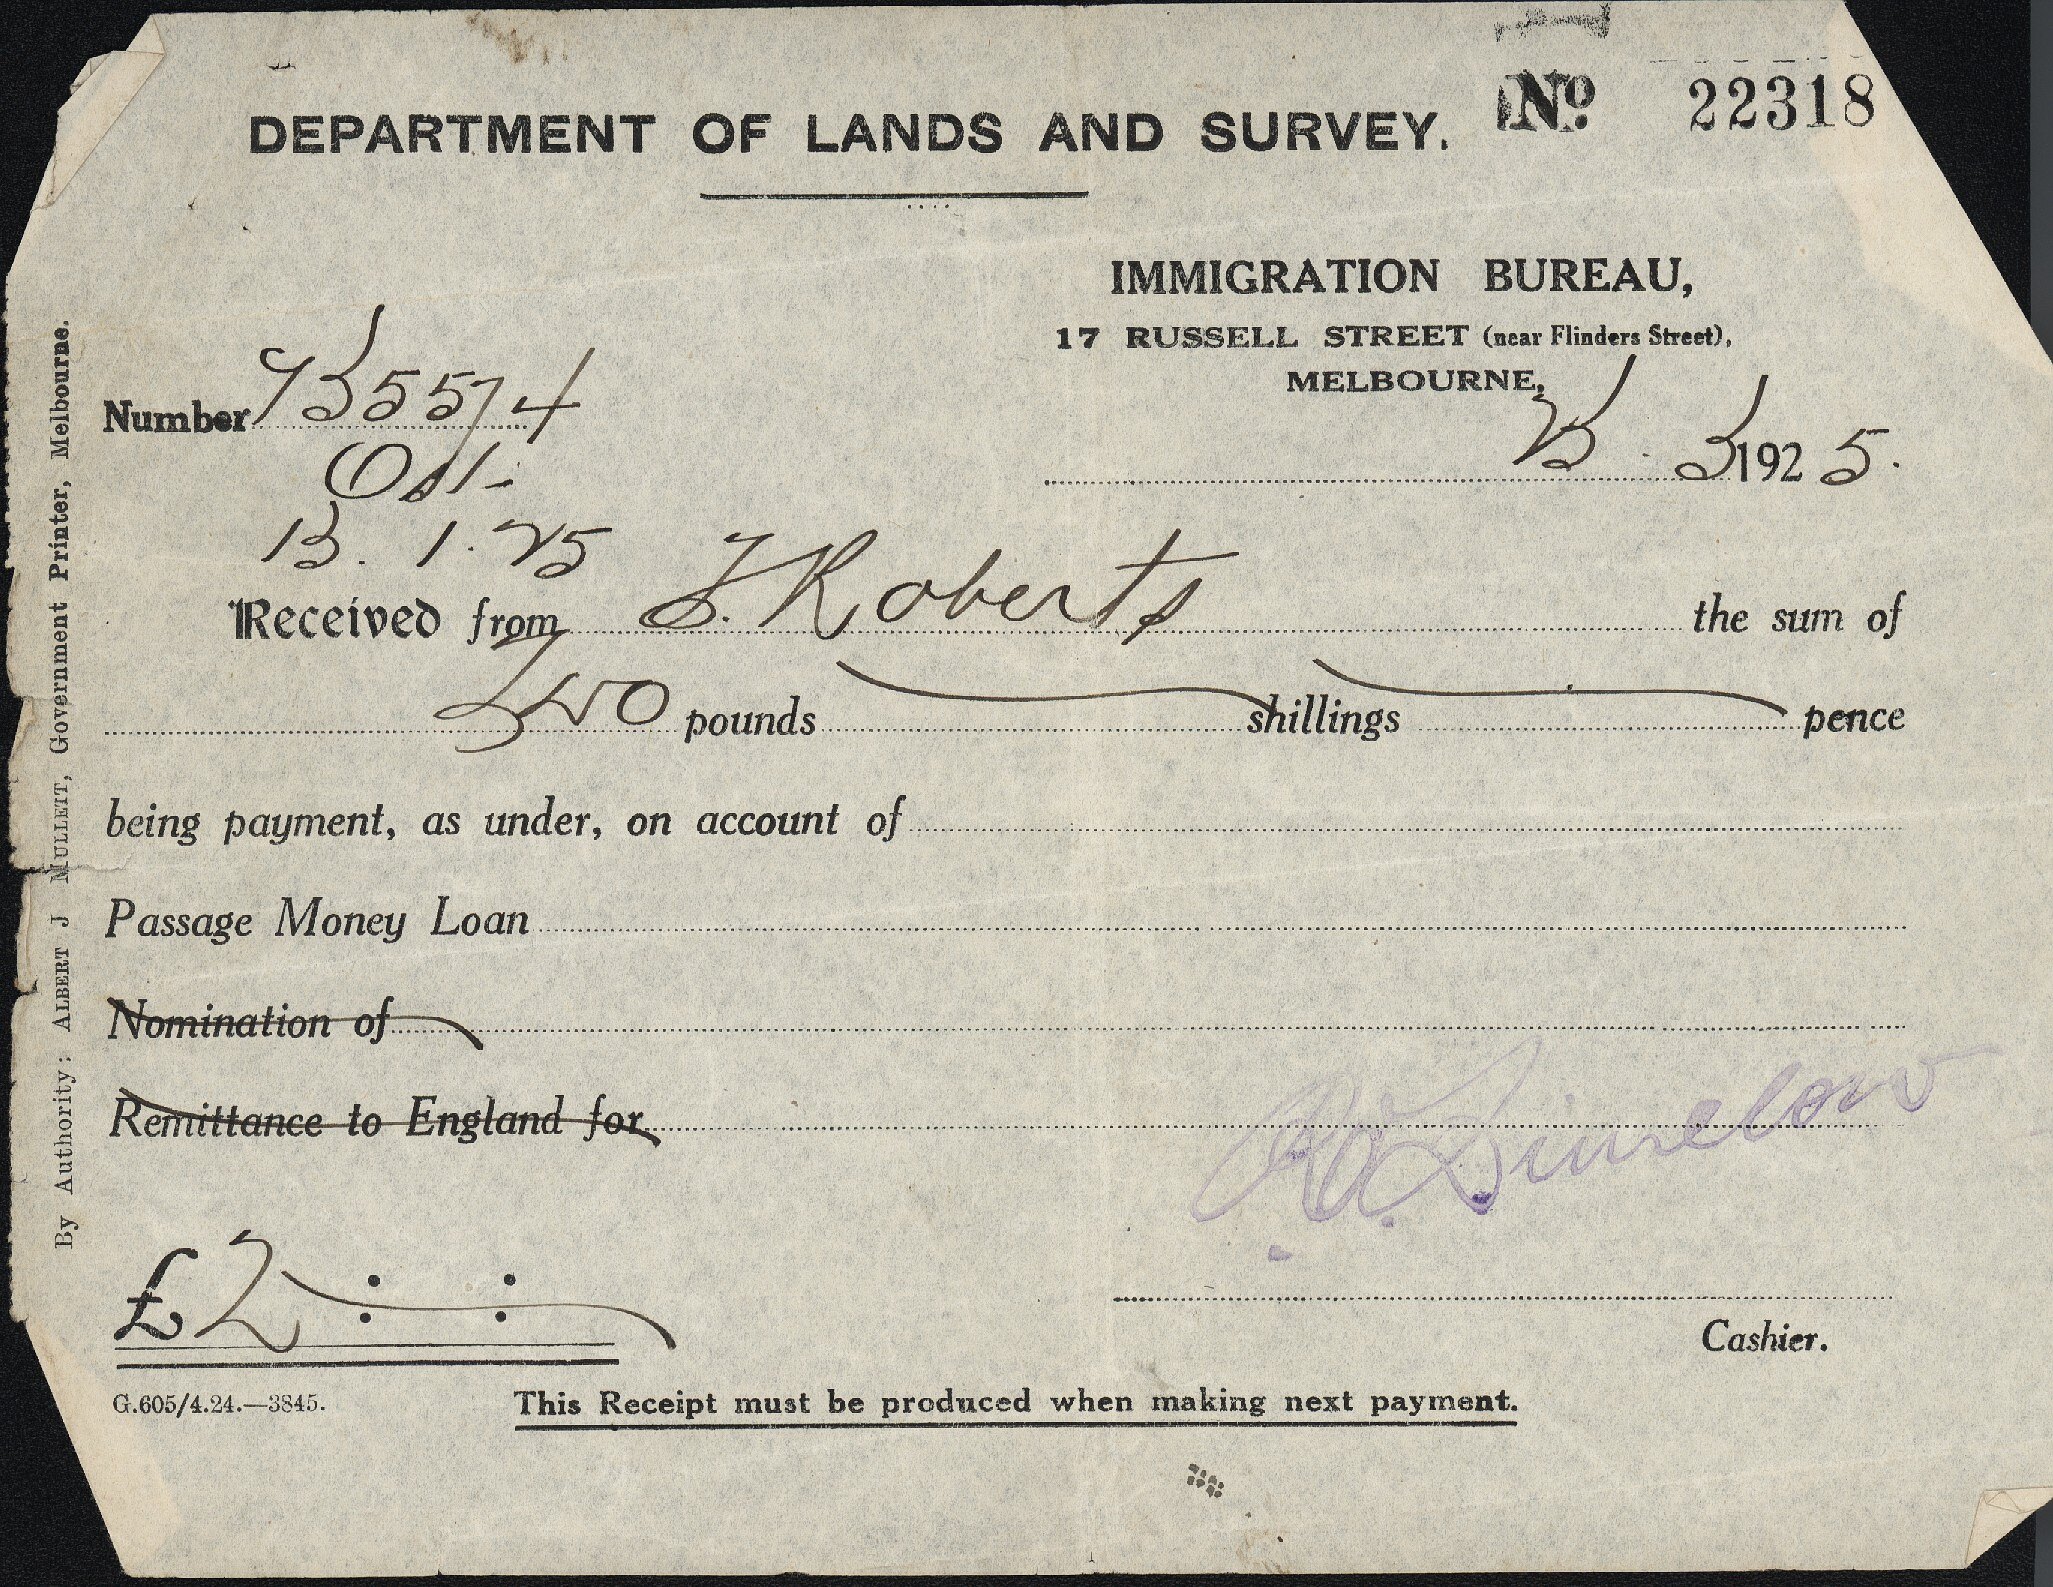 DEPARTMENT OF LANDS AND SURVEY. No. 22318
IMMIGRATION BUREAU,
17 RUSSELL STREET (near Flinders Street),
MELBOURNE,
Number 73557/4
3 1925.
13.1.25
Received from J. Roberts the sum of
Two pounds shillings pence
being payment, as under, on account of
Passage Money Loan
Nomination of
Remittance to England for
£2 : :
Cashier.
G.605/4.24.—3845. This Receipt must be produced when making next payment.
By Authority: ALBERT J MULLETT, Government Printer, Melbourne.